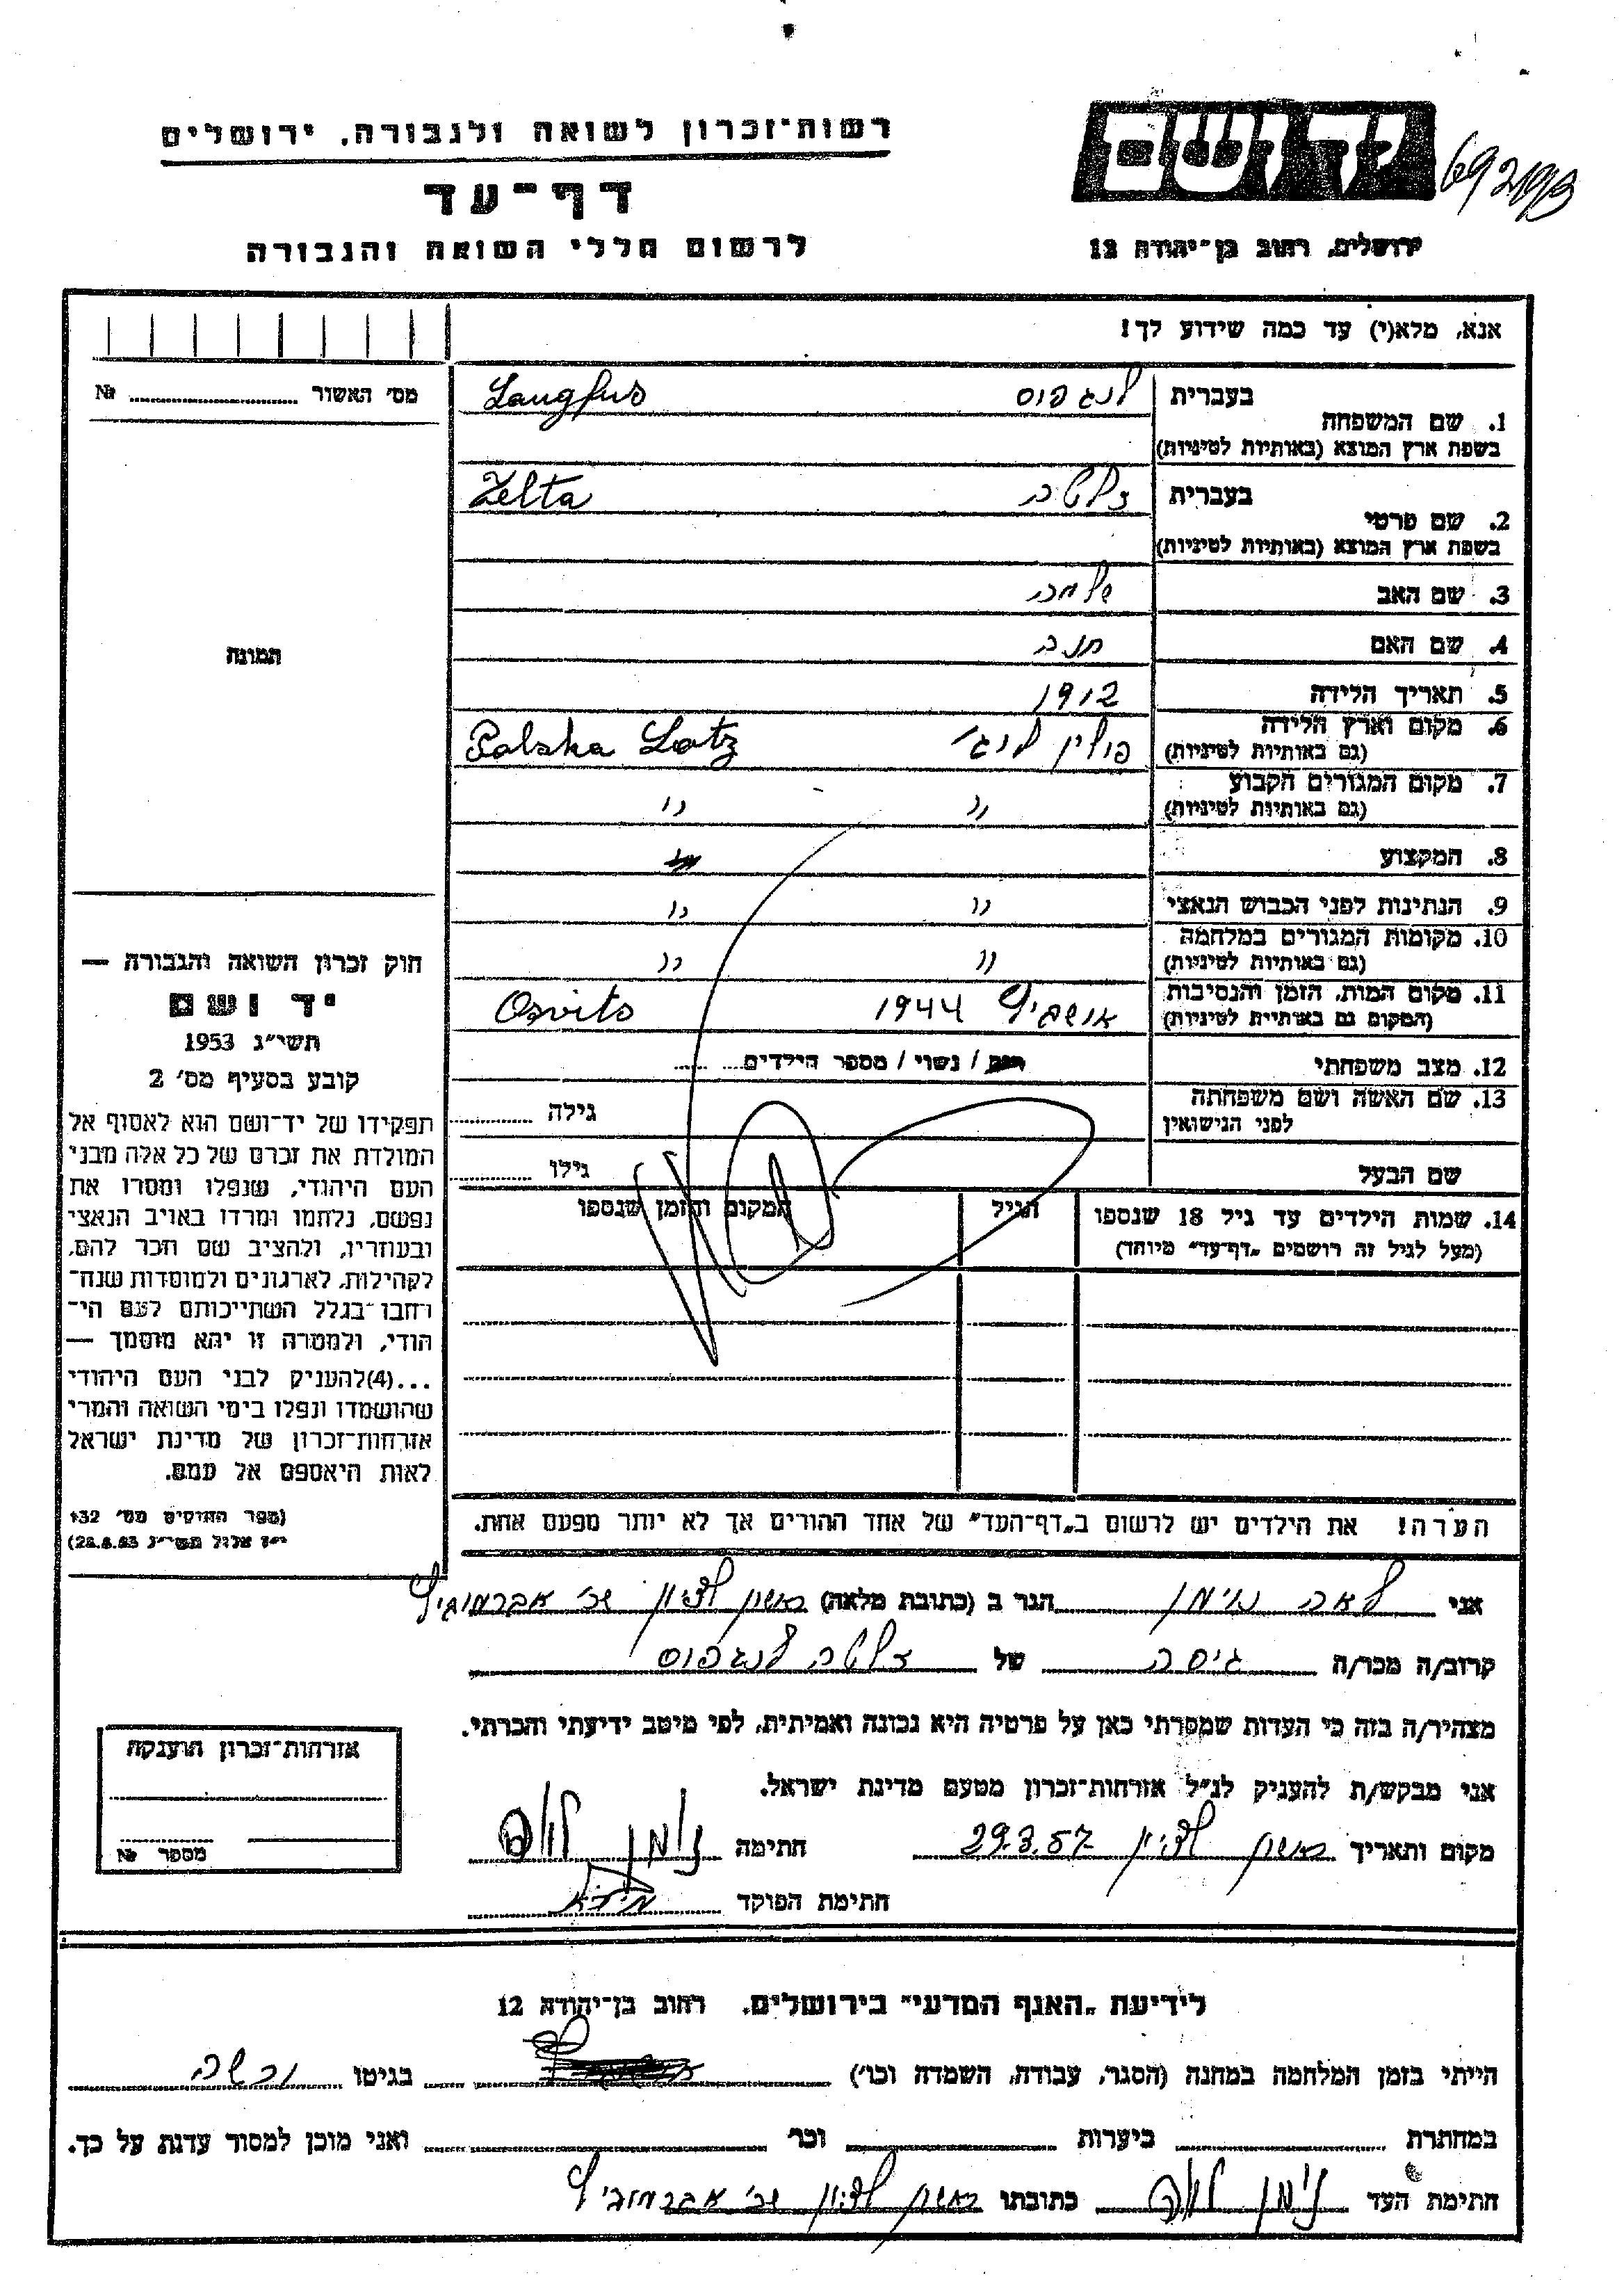 רשות־זכרון לשואה ולגבורה, ירושלים
דף־עד
לרשום חללי השואה והגבורה
יד ושם
ירושלים, רחוב בן־יהודה 12
אנא, מלא(י) עד כמה שידוע לך!
מס׳ האשור № 
1. שם המשפחה
בעברית לנגפוס Langfus
בשפת ארץ המוצא (באותיות לטיניות)
2. שם פרטי
בעברית זלטה Zelta
בשפת ארץ המוצא (באותיות לטיניות)
3. שם האב שלמה
4. שם האם חנה
5. תאריך הלידה 1912
6. מקום וארץ הלידה פולין לודג׳ Polska Lotz
(גם באותיות לטיניות)
7. מקום המגורים הקבוע " "
(גם באותיות לטיניות)
8. המקצוע
9. הנתינות לפני הכבוש הנאצי " "
10. מקומות המגורים במלחמה " "
(גם באותיות לטיניות)
11. מקום המות, הזמן והנסיבות אושביץ 1944 Osvits
(המקום גם באותיות לטיניות)
12. מצב משפחתי רוק / נשוי / מספר הילדים
13. שם האשה ושם משפחתה גילה
לפני הנישואין
שם הבעל גילו
14. שמות הילדים עד גיל 18 שנספו הגיל המקום והזמן שנספו
(מעל לגיל זה רושמים „דף־עד" מיוחד)
תמונה
חוק זכרון השואה והגבורה —
יד ושם
תשי״ג 1953
קובע בסעיף מס׳ 2
תפקידו של יד־ושם הוא לאסוף אל
המולדת את זכרם של כל אלה מבני
העם היהודי, שנפלו ומסרו את
נפשם, נלחמו ומרדו באויב הנאצי
ובעוזריו, ולהציב שם וזכר להם,
לקהילות, לארגונים ולמוסדות שנח־
רחבו בגלל השתייכותם לעם הי־
הודי, ולמטרה זו יהא מוסמך —
...(4)להעניק לבני העם היהודי
שהושמדו ונפלו בימי השואה והמרי
אזרחות־זכרון של מדינת ישראל
לאות היאספם אל עמם.
(ספר החוקים מס׳ 132
י״ז אלול תשי״ג 28.8.53)
הערה! את הילדים יש לרשום ב„דף־העד" של אחד ההורים אך לא יותר מפעם אחת.
אני לאה נוימן הגר ב (כתובת מלאה) ראשון לציון שכ׳ אברמוביץ
קרוב/ה מכר/ה גיסה של זלטה לנגפוס
מצהיר/ה בזה כי העדות שמסרתי כאן על פרטיה היא נכונה ואמיתית, לפי מיטב ידיעתי והכרתי.
אני מבקש/ת להעניק לנ״ל אזרחות־זכרון מטעם מדינת ישראל.
מקום ותאריך ראשון לציון 29.3.57 חתימה נוימן לאה
חתימת הפוקד
אזרחות־זכרון הוענקה
מספר №
לידיעת „האגף המדעי" בירושלים, רחוב בן־יהודה 12
הייתי בזמן המלחמה במחנה (הסגר, עבודה, השמדה וכו׳) בגיטו ורשה
במחתרת ביערות וכו׳ ואני מוכן למסור עדות על כך.
חתימת העד נוימן לאה כתובתו ראשון לציון שכ׳ אברמוביץ